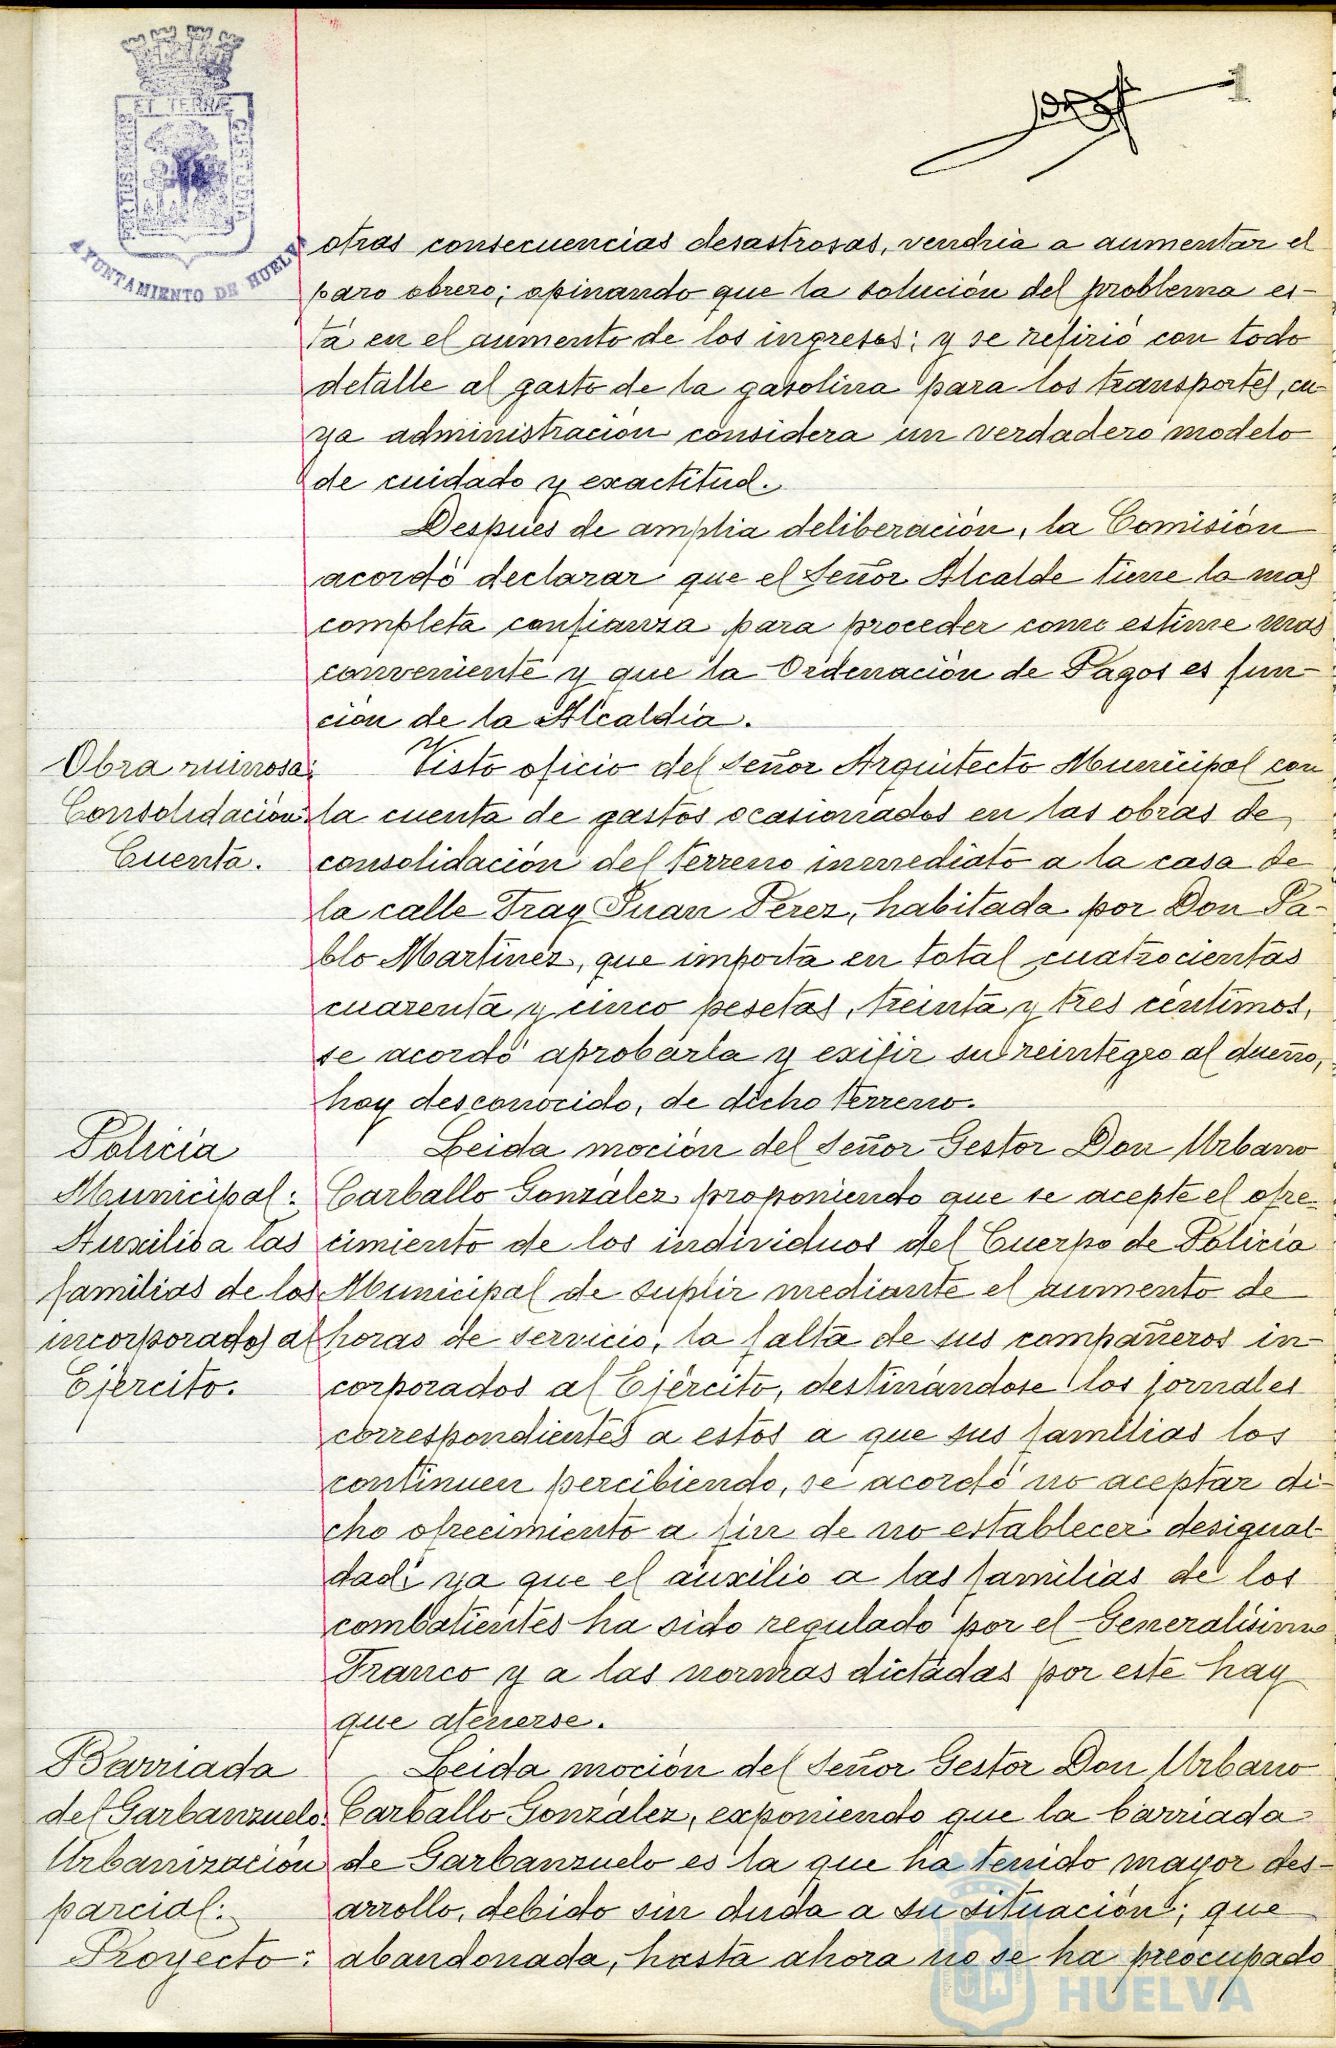 1
PORTUS MARIS
ET TERRÆ
CUSTODIA
AYUNTAMIENTO DE HUELVA
otras consecuencias desastrosas, vendria a aumentar el
paro obrero; opinando que la solución del problema es-
tá en el aumento de los ingresos; y se refirió con todo
detalle al gasto de la gasolina para los transportes, cu-
ya administración considera un verdadero modelo
de cuidado y exactitud.
Después de amplia deliberación, la Comisión
acordó declarar que el Señor Alcalde tiene la mas
completa confianza para proceder como estime mas
conveniente y que la Ordenación de Pagos es fun-
ción de la Alcaldía.
Obra ruinosa:
Consolidación:
Cuenta.
Visto oficio del Señor Arquitecto Municipal con
la cuenta de gastos ocasionados en las obras de
consolidación del terreno inmediato a la casa de
la calle Fray Juan Perez, habitada por Don Pa-
blo Martinez, que importa en total cuatrocientas
cuarenta y cinco pesetas, treinta y tres céntimos,
se acordó aprobarla y exigir su reintegro al dueño,
hoy desconocido, de dicho terreno.
Policía
Municipal:
Auxilio a las
familias de los
incorporados al
Ejército.
Leida moción del Señor Gestor Don Urbano
Carballo González proponiendo que se acepte el ofre-
cimiento de los individuos del Cuerpo de Policía
Municipal de suplir mediante el aumento de
horas de servicio, la falta de sus compañeros in-
corporados al Ejército, destinándose los jornales
correspondientes a estos a que sus familias los
continuen percibiendo, se acordó no aceptar di-
cho ofrecimiento a fin de no establecer desigual-
dad, ya que el auxilio a las familias de los
combatientes ha sido regulado por el Generalísimo
Franco y a las normas dictadas por este hay
que atenerse.
Barriada
del Garbanzuelo:
Urbanización
parcial:
Proyecto:
Leida moción del Señor Gestor Don Urbano
Carballo González, exponiendo que la barriada
de Garbanzuelo es la que ha tenido mayor des-
arrollo, debido sin duda a su situación; que
abandonada, hasta ahora no se ha preocupado
HUELVA